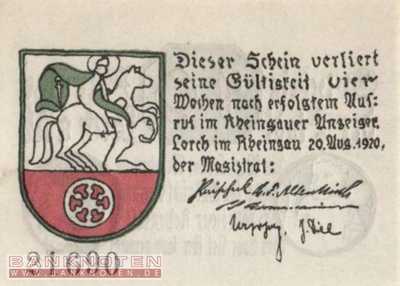 Dieser Schein verliert
seine Gültigkeit vier
Wochen nach erfolgtem Auf-
ruf im Rheingauer Anzeiger.
Lorch im Rheingau 20. Aug. 1920.
der Magistrat:
BANKNOTEN
WWW.BANKNOTEN.DE